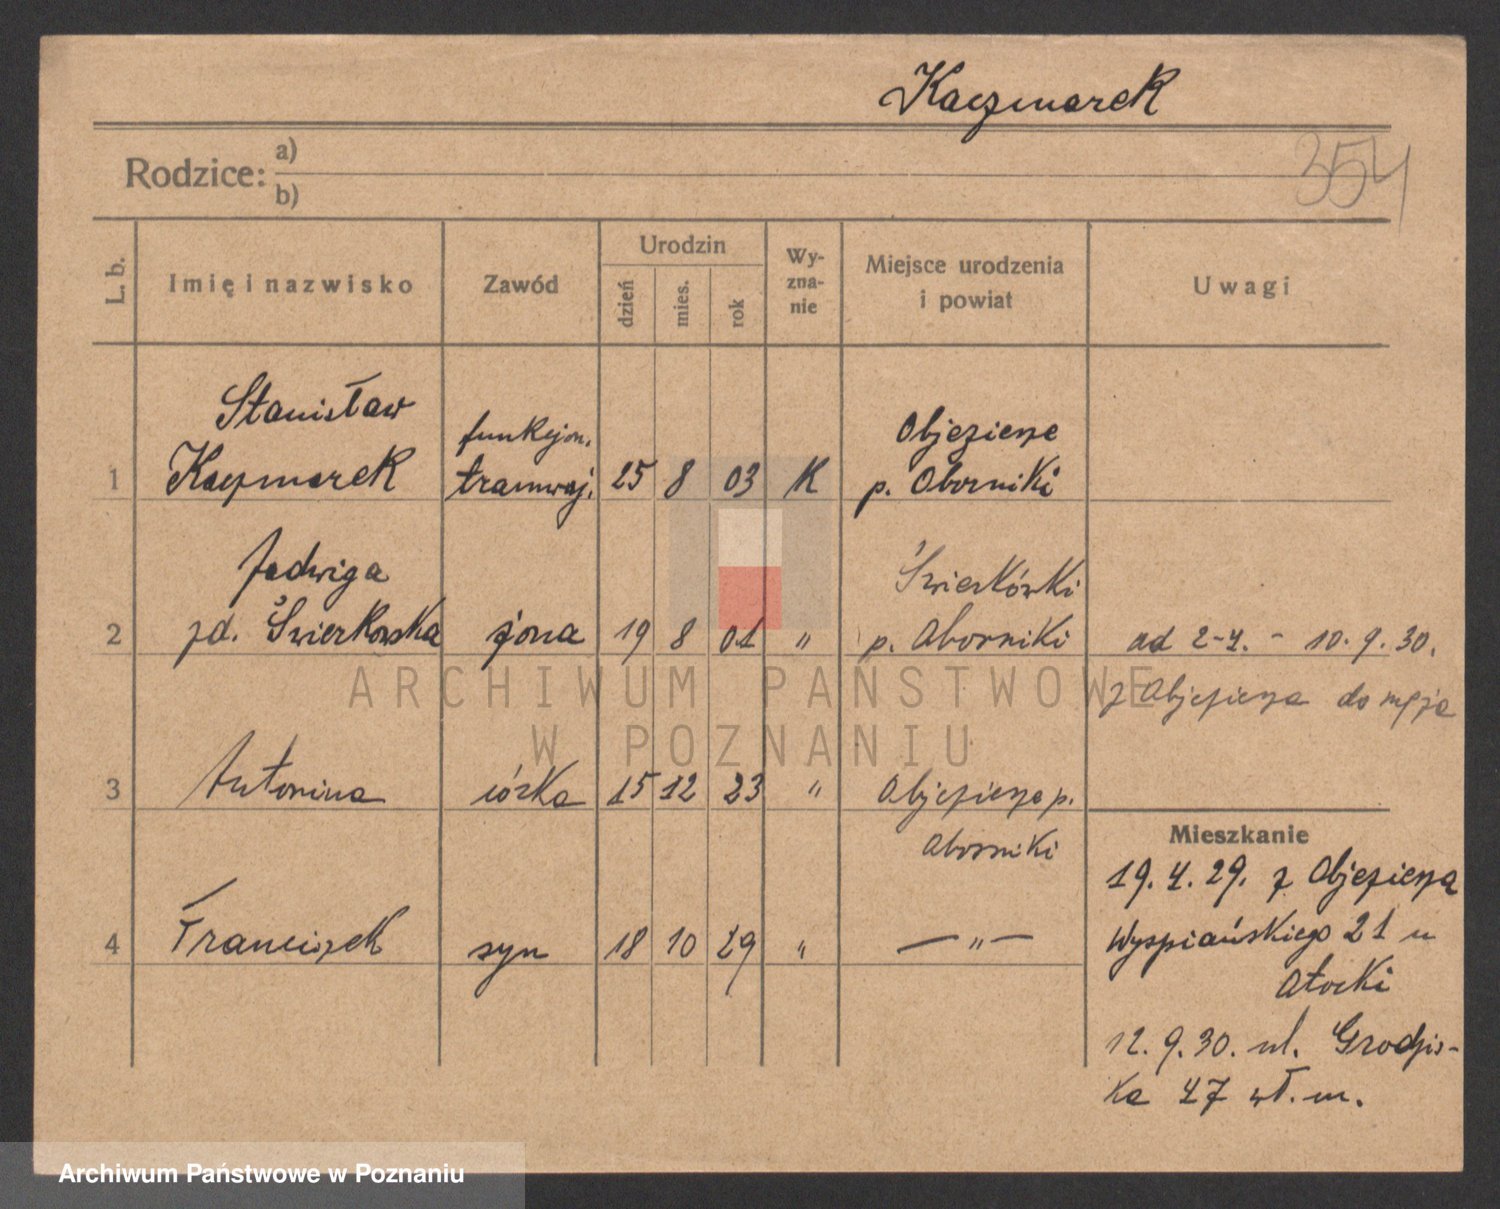 Kaczmarek
354
Rodzice: a)
b)
L. b.
Imię i nazwisko
Zawód
Urodzin
dzień
mies.
rok
Wy-
zna-
nie
Miejsce urodzenia
i powiat
Uwagi
Stanisław
funkcjon.
Objezierze
1 Kaczmarek tramwaj. 25 8 03 K p. Oborniki
Jadwiga
Świerkówki
2 zd. Świerkowska żona 19 8 01 " p. Oborniki od 2-4. - 10.9.30.
z Objezierza do męża
ARCHIWUM PAŃSTWOWE
W POZNANIU
3 Antonina córka 15 12 23 " Objezierze p.
Oborniki
Mieszkanie
19.4.29. z Objezierza
4 Franciszek syn 18 10 29 " — " — Wyspiańskiego 21 u
12.9.30. ul. Grodzis-
ka 47 wł. m.
Archiwum Państwowe w Poznaniu